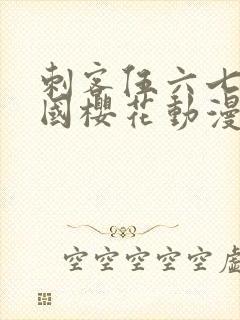 刺客伍六七
國櫻花動漫
空空空空空虛